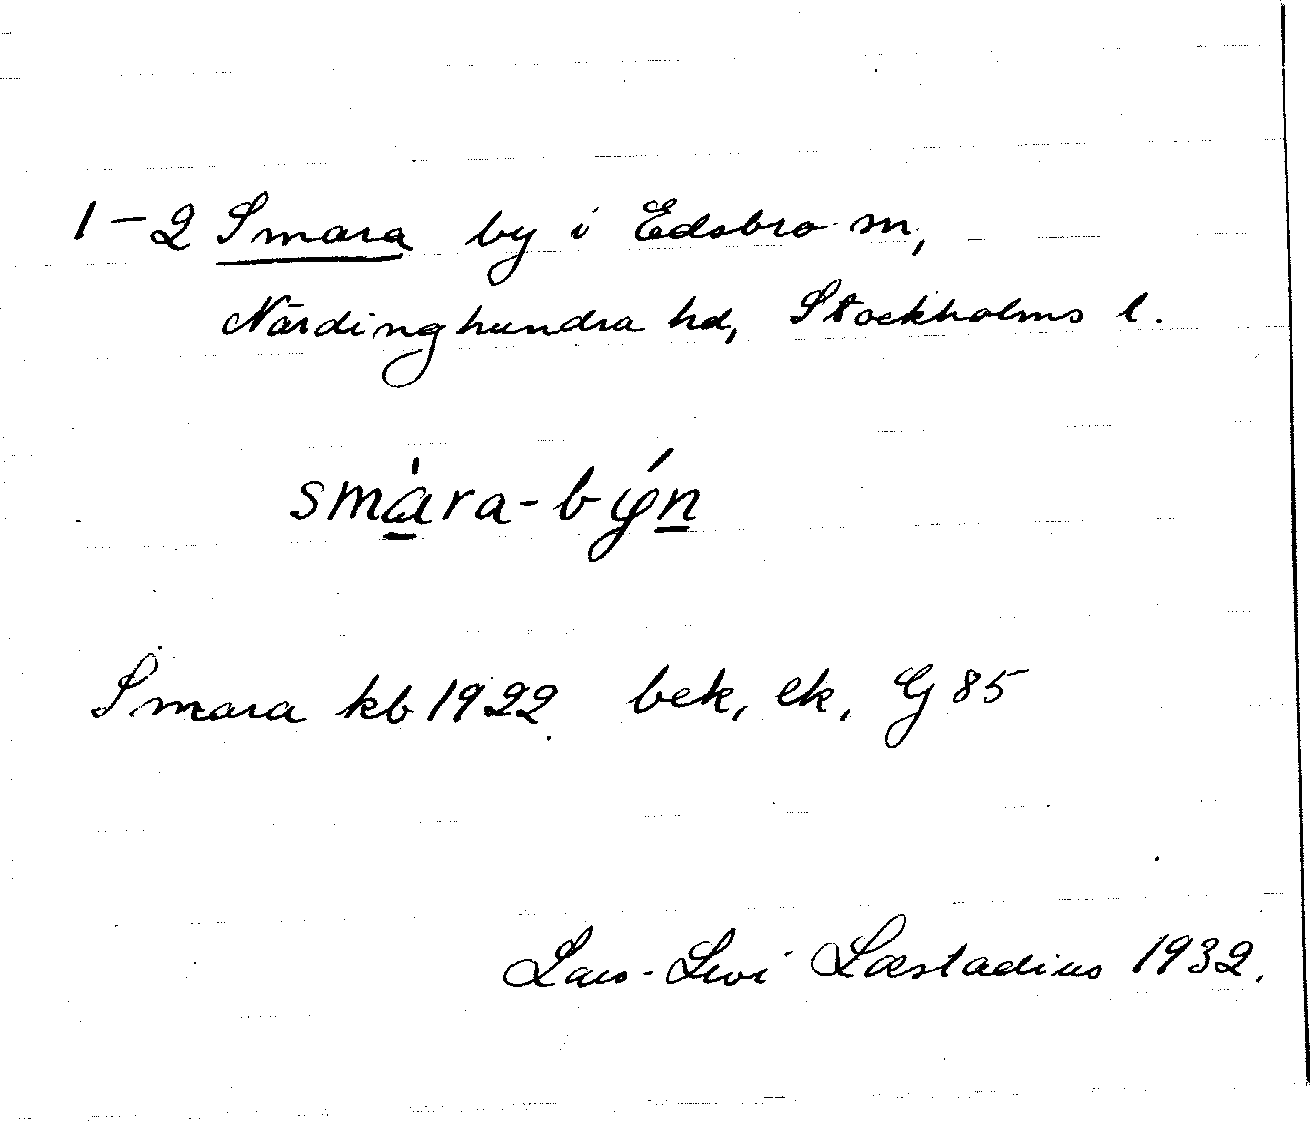 1-2 Smara by i Edsbro sn,
Närdinghundra hd, Stockholms l.
smàra-býn
Smara kb 1922. bek, ek, GJ 85
Lars-Levi Læstadius 1932.